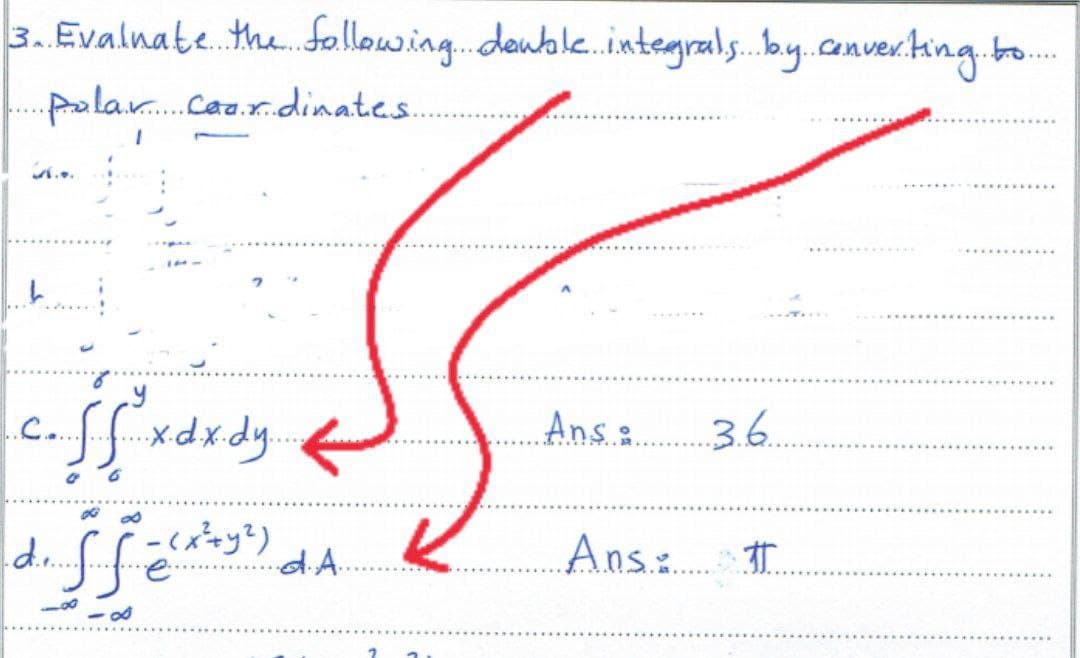 3. Evaluate the following double integrals by converting to
polar coordinates
c. ∫₀⁶ ∫₀ʸ x dx dy Ans: 36
d. ∫_{-∞}^{∞} ∫_{-∞}^{∞} e^{-(x²+y²)} dA Ans: π